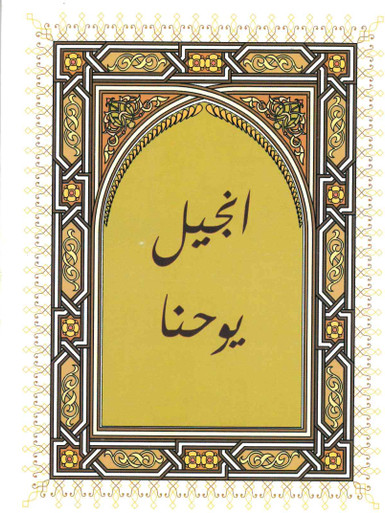 انجیل
یوحنا